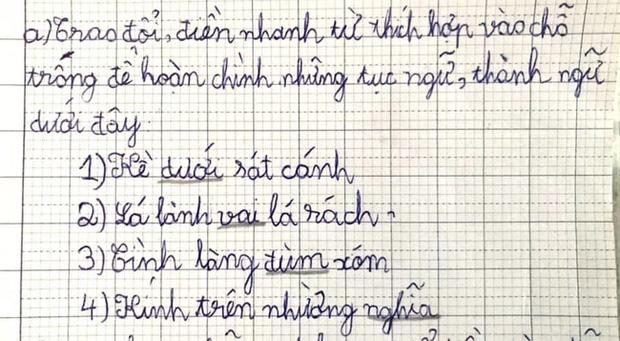 a) Trao đổi, điền nhanh từ thích hợp vào chỗ
trống để hoàn chỉnh những tục ngữ, thành ngữ
dưới đây.
1) Kề dưới sát cánh
2) Lá lành vai lá rách.
3) Tình làng đùm xóm
4) Kính trên nhường nghĩa